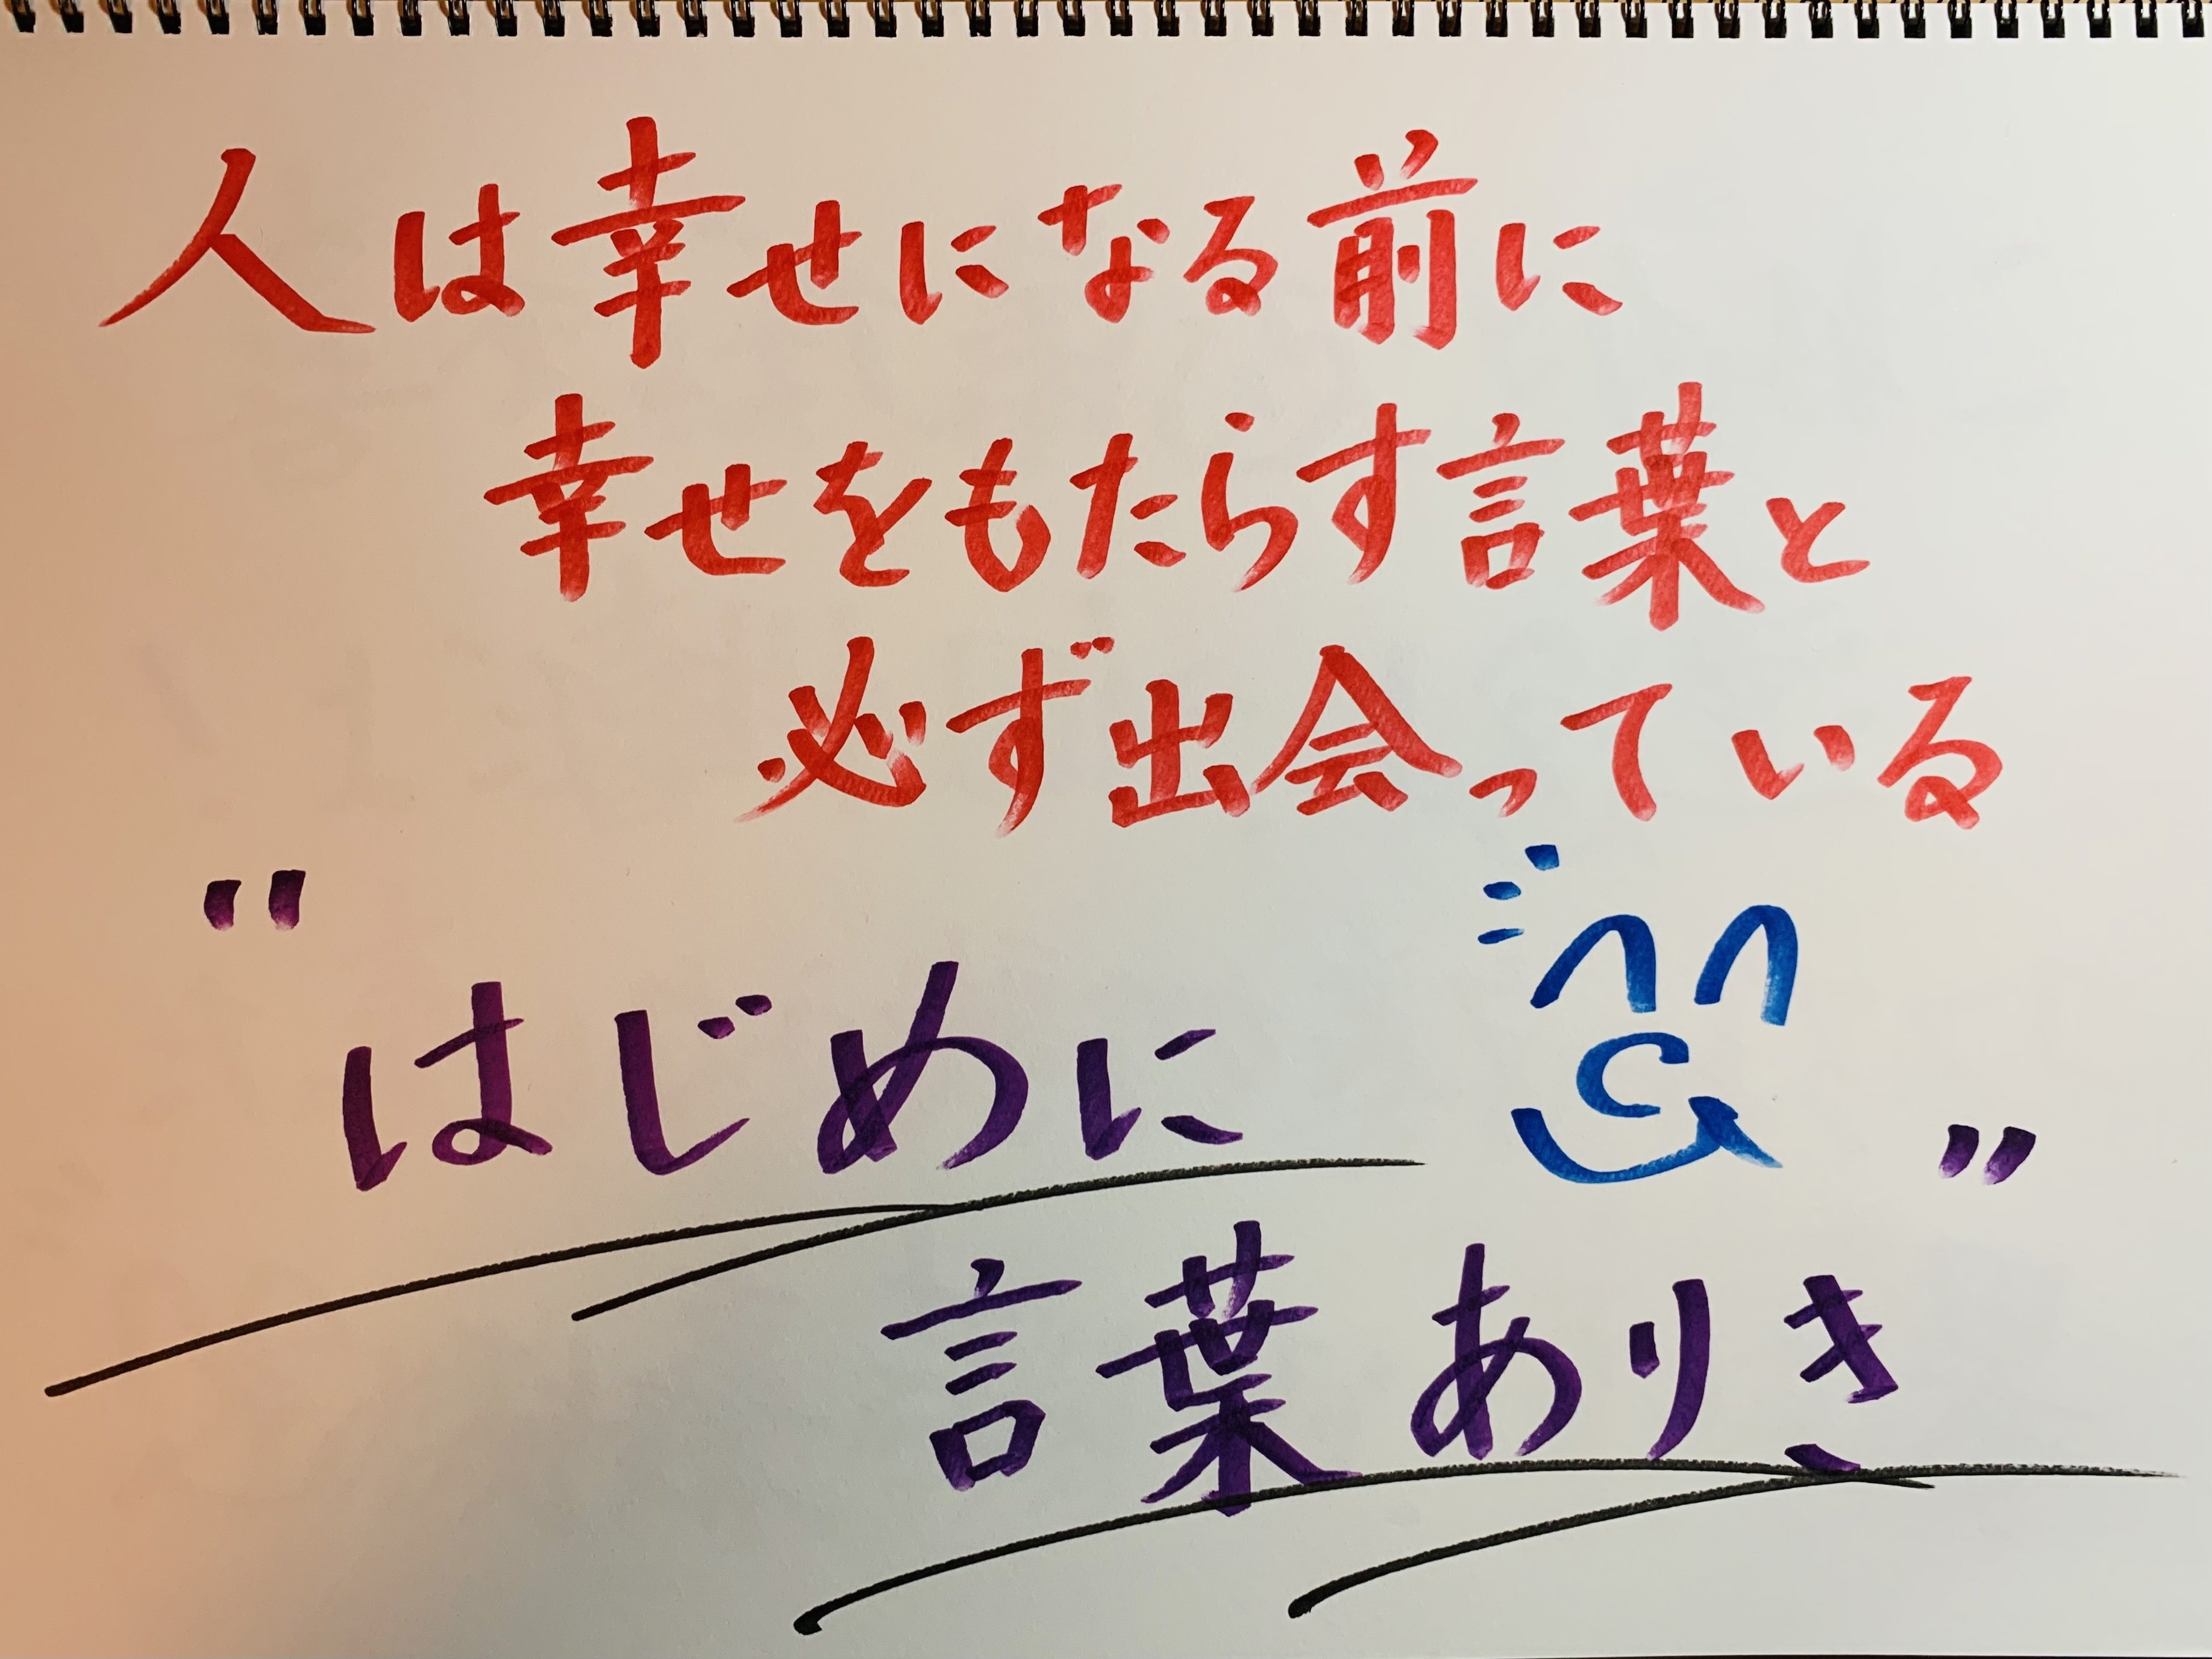 人は幸せになる前に
幸せをもたらす言葉と
必ず出会っている
"はじめに
言葉ありき"